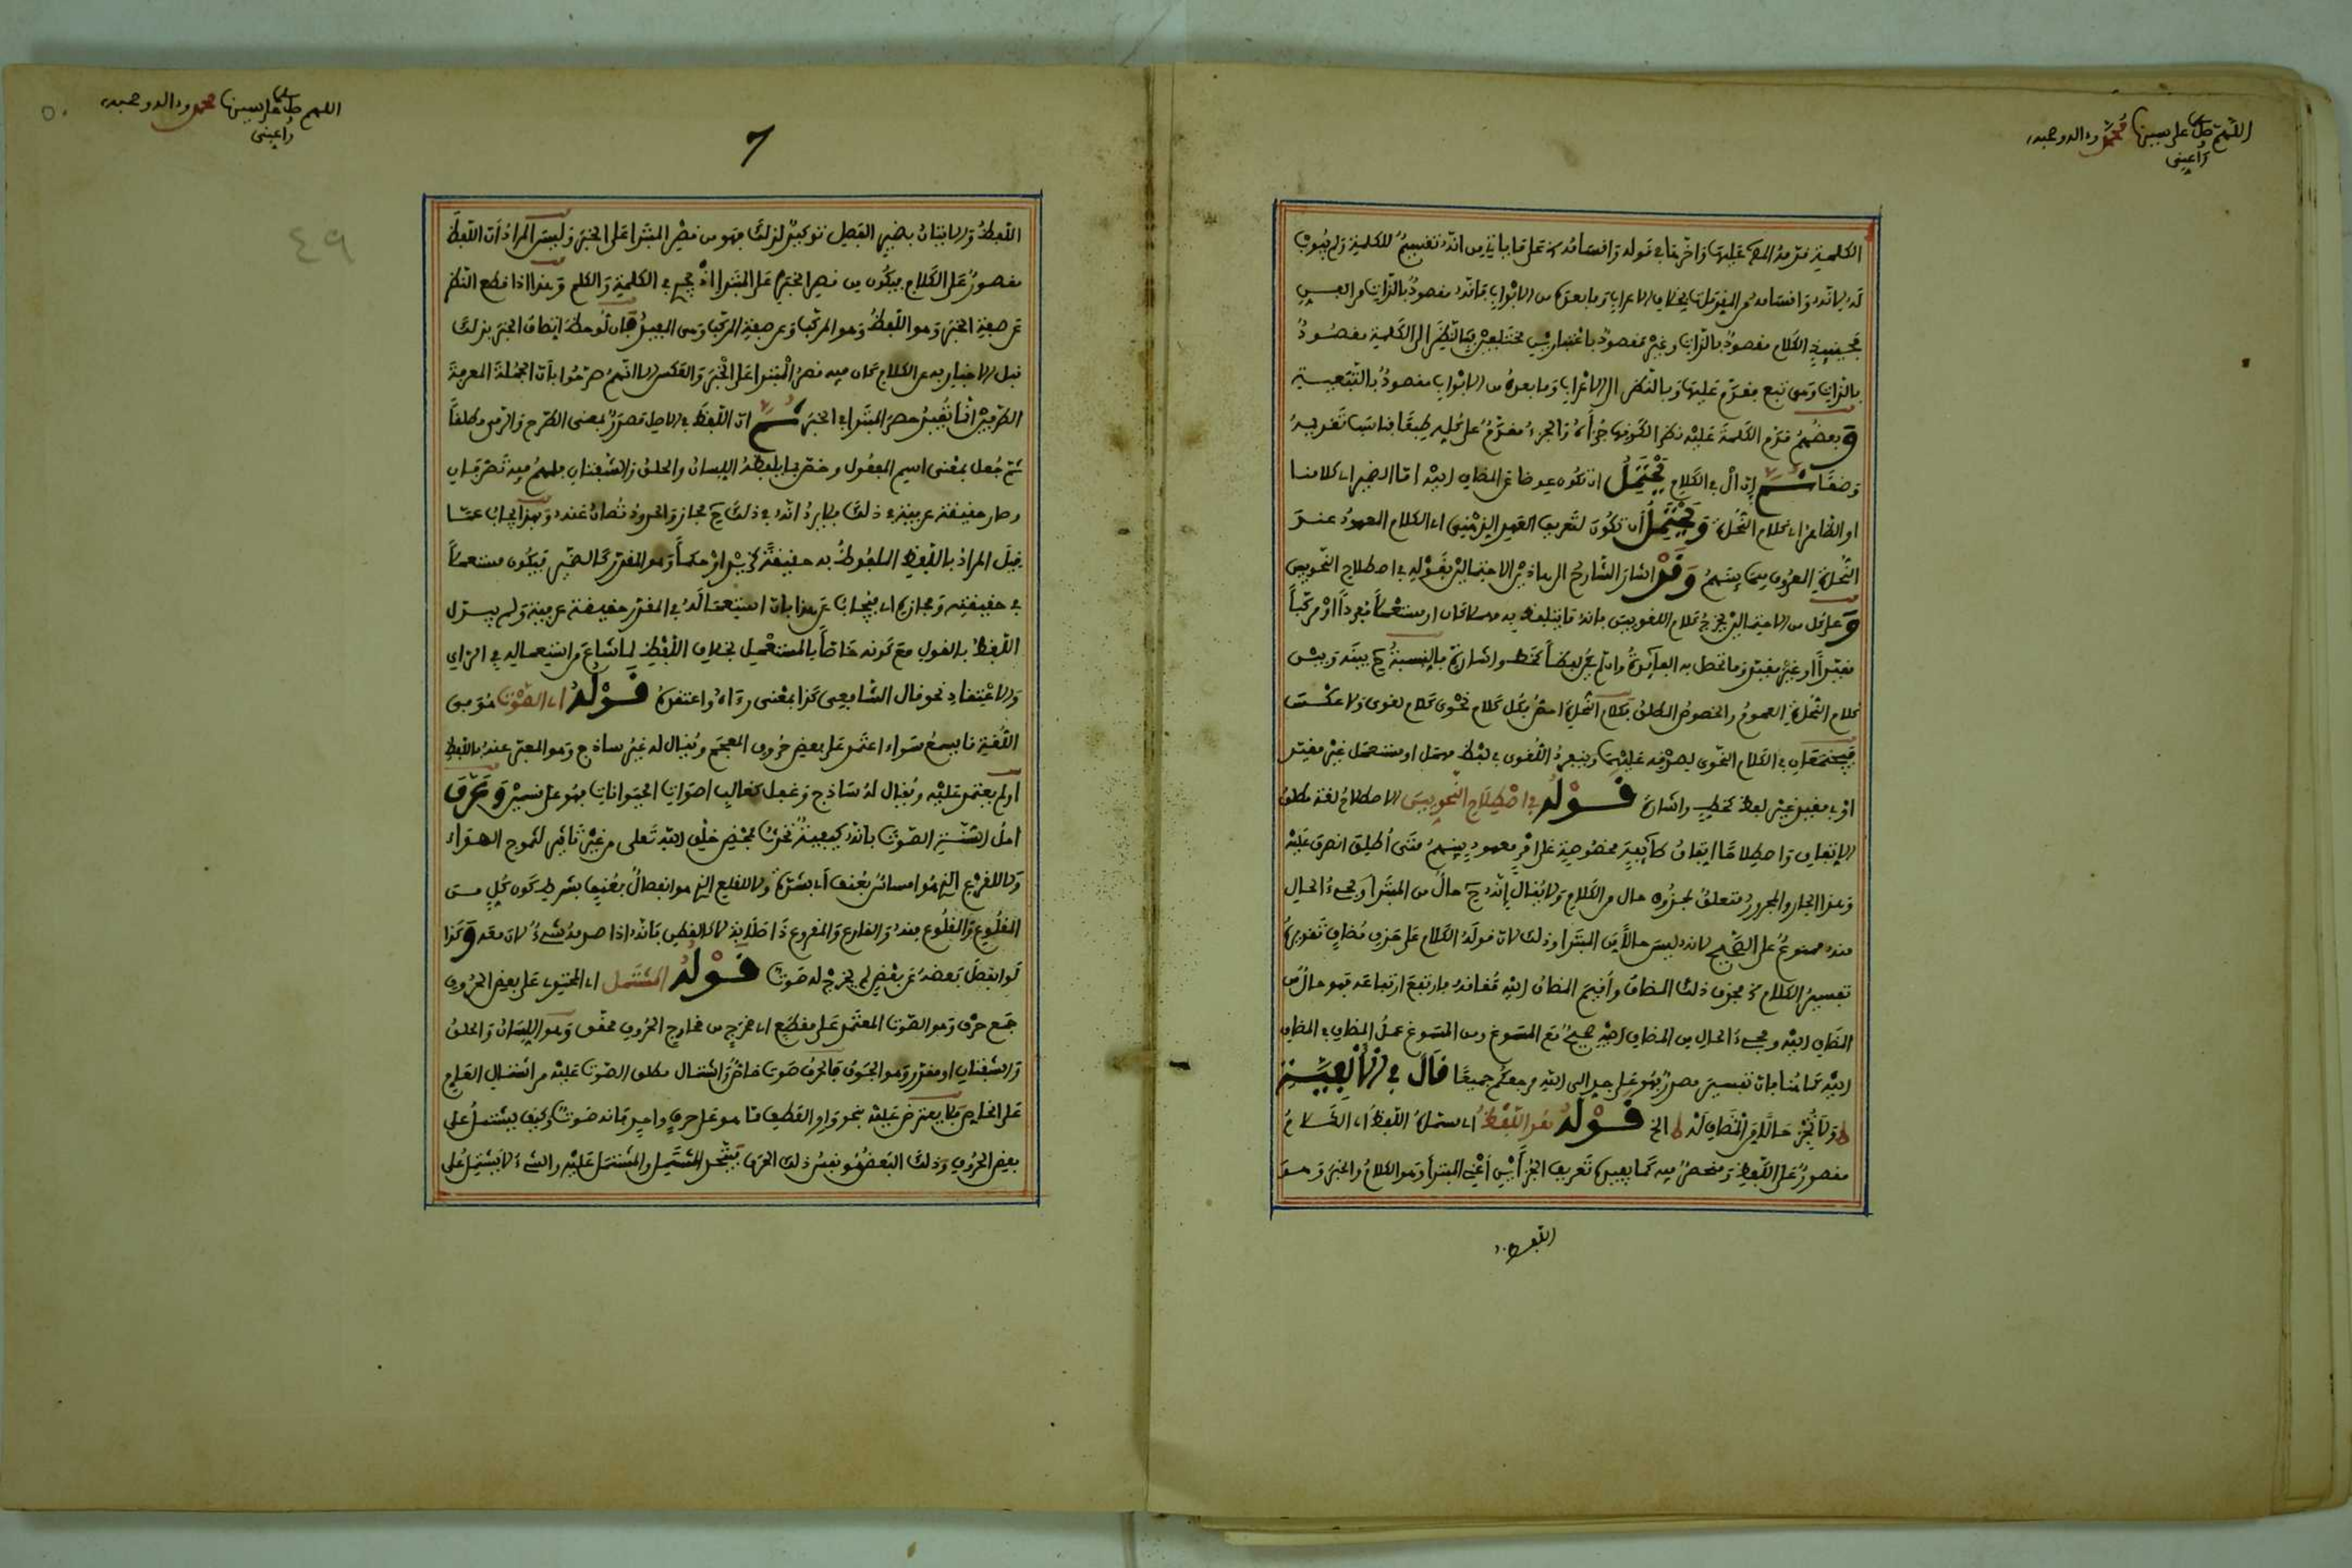 اللهم صل على سيدنا محمد وءاله وصحبه
الكلمة قدمه المص عليها وأخرها في قوله وأقسامه على ما يأتي من أنه تقسيم للكلمة ولم يبوب
له لأنه وأقسامه هو المقصود بخلاف الإعراب وما بعده من الأبواب فإنه مقصود بالذات
فحينئذ الكلام مقصود بالذات وغير مقصود باعتبارين مختلفين فبالنظر إلى الكلمة مقصود
بالذات وهي تبع مقدم عليها وبالنظر إلى الإعراب وما بعده من الأبواب مقصود بالتبعية
وبعضهم قدم الكلمة عليه نظرا لكونها جزأه والجزء مقدم على كله طبعا فناسب تقديمه
وضعا ثم إن أل في الكلام يحتمل أن تكون عوضا عن المضاف إليه إما الضمير أي كلامنا
أو الظاهر أي كلام النحاة ويحتمل أن تكون لتعريف العهد الذهني أي الكلام المعهود عند
النحاة المعروف فيما بينهم وقد أشار الشارح إلى هاذين الاحتمالين بقوله في اصطلاح النحويين
وعلى كل من الاحتمالين يخرج كلام اللغويين فإنه ما يتلفظ به مهملا كان أو مستعملا مفردا أو مركبا
مفيدا أو غير مفيد وما تحصل به الفائدة وإن لم يكن لفظا كخط وإشارة فالنسبة ح بينه وبين
كلام النحاة العموم والخصوص المطلق فكلام النحاة أخص فكل كلام نحوي كلام لغوي ولا عكس
فيجتمعان في الكلام النحوي لصدقه عليهما وينفرد اللغوي في لفظ مهمل أو مستعمل غير مفيد
أو في مفيد غير لفظ كخط وإشارة قوله في اصطلاح النحويين الاصطلاح لغة مطلق
الاتفاق واصطلاحا اتفاق طائفة مخصوصة على أمر معهود بينهم متى أطلق انصرف إليه
وهذا الجار والمجرور متعلق بمحذوف حال من الكلام ولا يقال إنه ح حال من المبتدا ومجيء الحال
منه ممنوع على الصحيح لأنه ليس حالا من المبتدا وذلك لأن قوله الكلام على حذف مضاف تقديره
تفسير الكلام فحذف ذلك المضاف وأقيم المضاف إليه مقامه فارتفع ارتفاعه فهو حال من
المضاف إليه ومجيء الحال من المضاف إليه صحيح مع المسوغ ومن المسوغ عمل المضاف في المضاف
إليه كما هنا فإن تفسير مصدر فهو على حد إلى الله مرجعكم جميعا قال في الألفية
ولا تجز حالا من المضاف له الخ قوله هو اللفظ أي الكلام
مقصور على اللفظ ومنحصر فيه كما يفيده تعريف الجزأين أعني المبتدأ وهو الكلام والخبر وهو
اللفظ
اللهم صل على سيدنا محمد وءاله وصحبه
٤٩
اللفظ والإتيان بضمير الفصل توكيد لذلك فهو من قصر المبتدا على الخبر وليس المراد أن اللفظ
مقصور على الكلام فيكون من قصر الخبر على المبتدا إذ يجيء في الكلمة والكلم وهذا إذا قطع النظر
عن صفة الخبر وهو اللفظ وهو المركب وعن صفة المركب وهي المفيد فإن لوحظ اتصاف الخبر بذلك
قبل الإخبار به عن الكلام كان فيه قصر المبتدا على الخبر والعكس إلا أنهم صرحوا بأن الجملة المعرفة
الطرفين إنما تفيد حصر المبتدا في الخبر ثم إن اللفظ في الأصل مصدر بمعنى الطرح والرمي مطلقا
ثم جعل بمعنى اسم المفعول وخص بما يلفظه اللسان والحلق والشفتان فلهم فيه تصرفان
وصار حقيقة عرفية في ذلك فلا يرد أنه في ذلك ح مجاز والحدود تصان عنه وبهذا يجاب عما
قيل المراد باللفظ الملفوظ به حقيقة كزيد أو حكما وهو المقدر كالضمير فيكون مستعملا
في حقيقته ومجازه أي يجاب عن هذا بأن استعماله في المقدر حقيقة عرفية ولم يبدل
اللفظ بالقول مع كونه خاصا بالمستعمل بخلاف اللفظ لما شاع من استعماله في الرأي
والاعتقاد نحو قال الشافعي كذا بمعنى رءاه واعتقده قوله أي الصوت هو في
اللغة ما يسمع سواء اعتمد على بعض حروف المعجم ويقال له غير ساذج وهو المعبر عنه باللفظ
أو لم يعتمد عليه ويقال له ساذج وغفل كغالب أصوات الحيوانات فهو على قسمين وعرف
أهل السنة الصوت بأنه كيفية تحدث بمحض خلق الله تعالى من غير تأثير لتموج الهواء
ولا للقرع الذي هو امساس بعنف أي بشدة ولا للقلع الذي هو انفصال بعنف بشرط كون كل من
المقلوع والمقلوع منه والقارع والمقروع ذا صلابة لا كالقطن فإنه إذا صدمه شيء لان معه وكذا
لو انفصل بعضه عن بعض لم يخرج له صوت قوله المشتمل أي المحتوي على بعض الحروف
جمع حرف وهو الصوت المعتمد على مقطع أي مخرج من مخارج الحروف محقق وهو اللسان والحلق
والشفتان أو مقدر وهو الجوف فالحرف صوت خاص واشتمال مطلق الصوت عليه من اشتمال العام
على الخاص فلا يعترض عليه بنحو واو العطف مما هو على حرف واحد فإنه صوت وكيف يشتمل على
بعض الحروف وذلك البعض هو نفس ذلك الحرف فيتحد المشتمل والمشتمل عليه والشيء لا يشتمل على